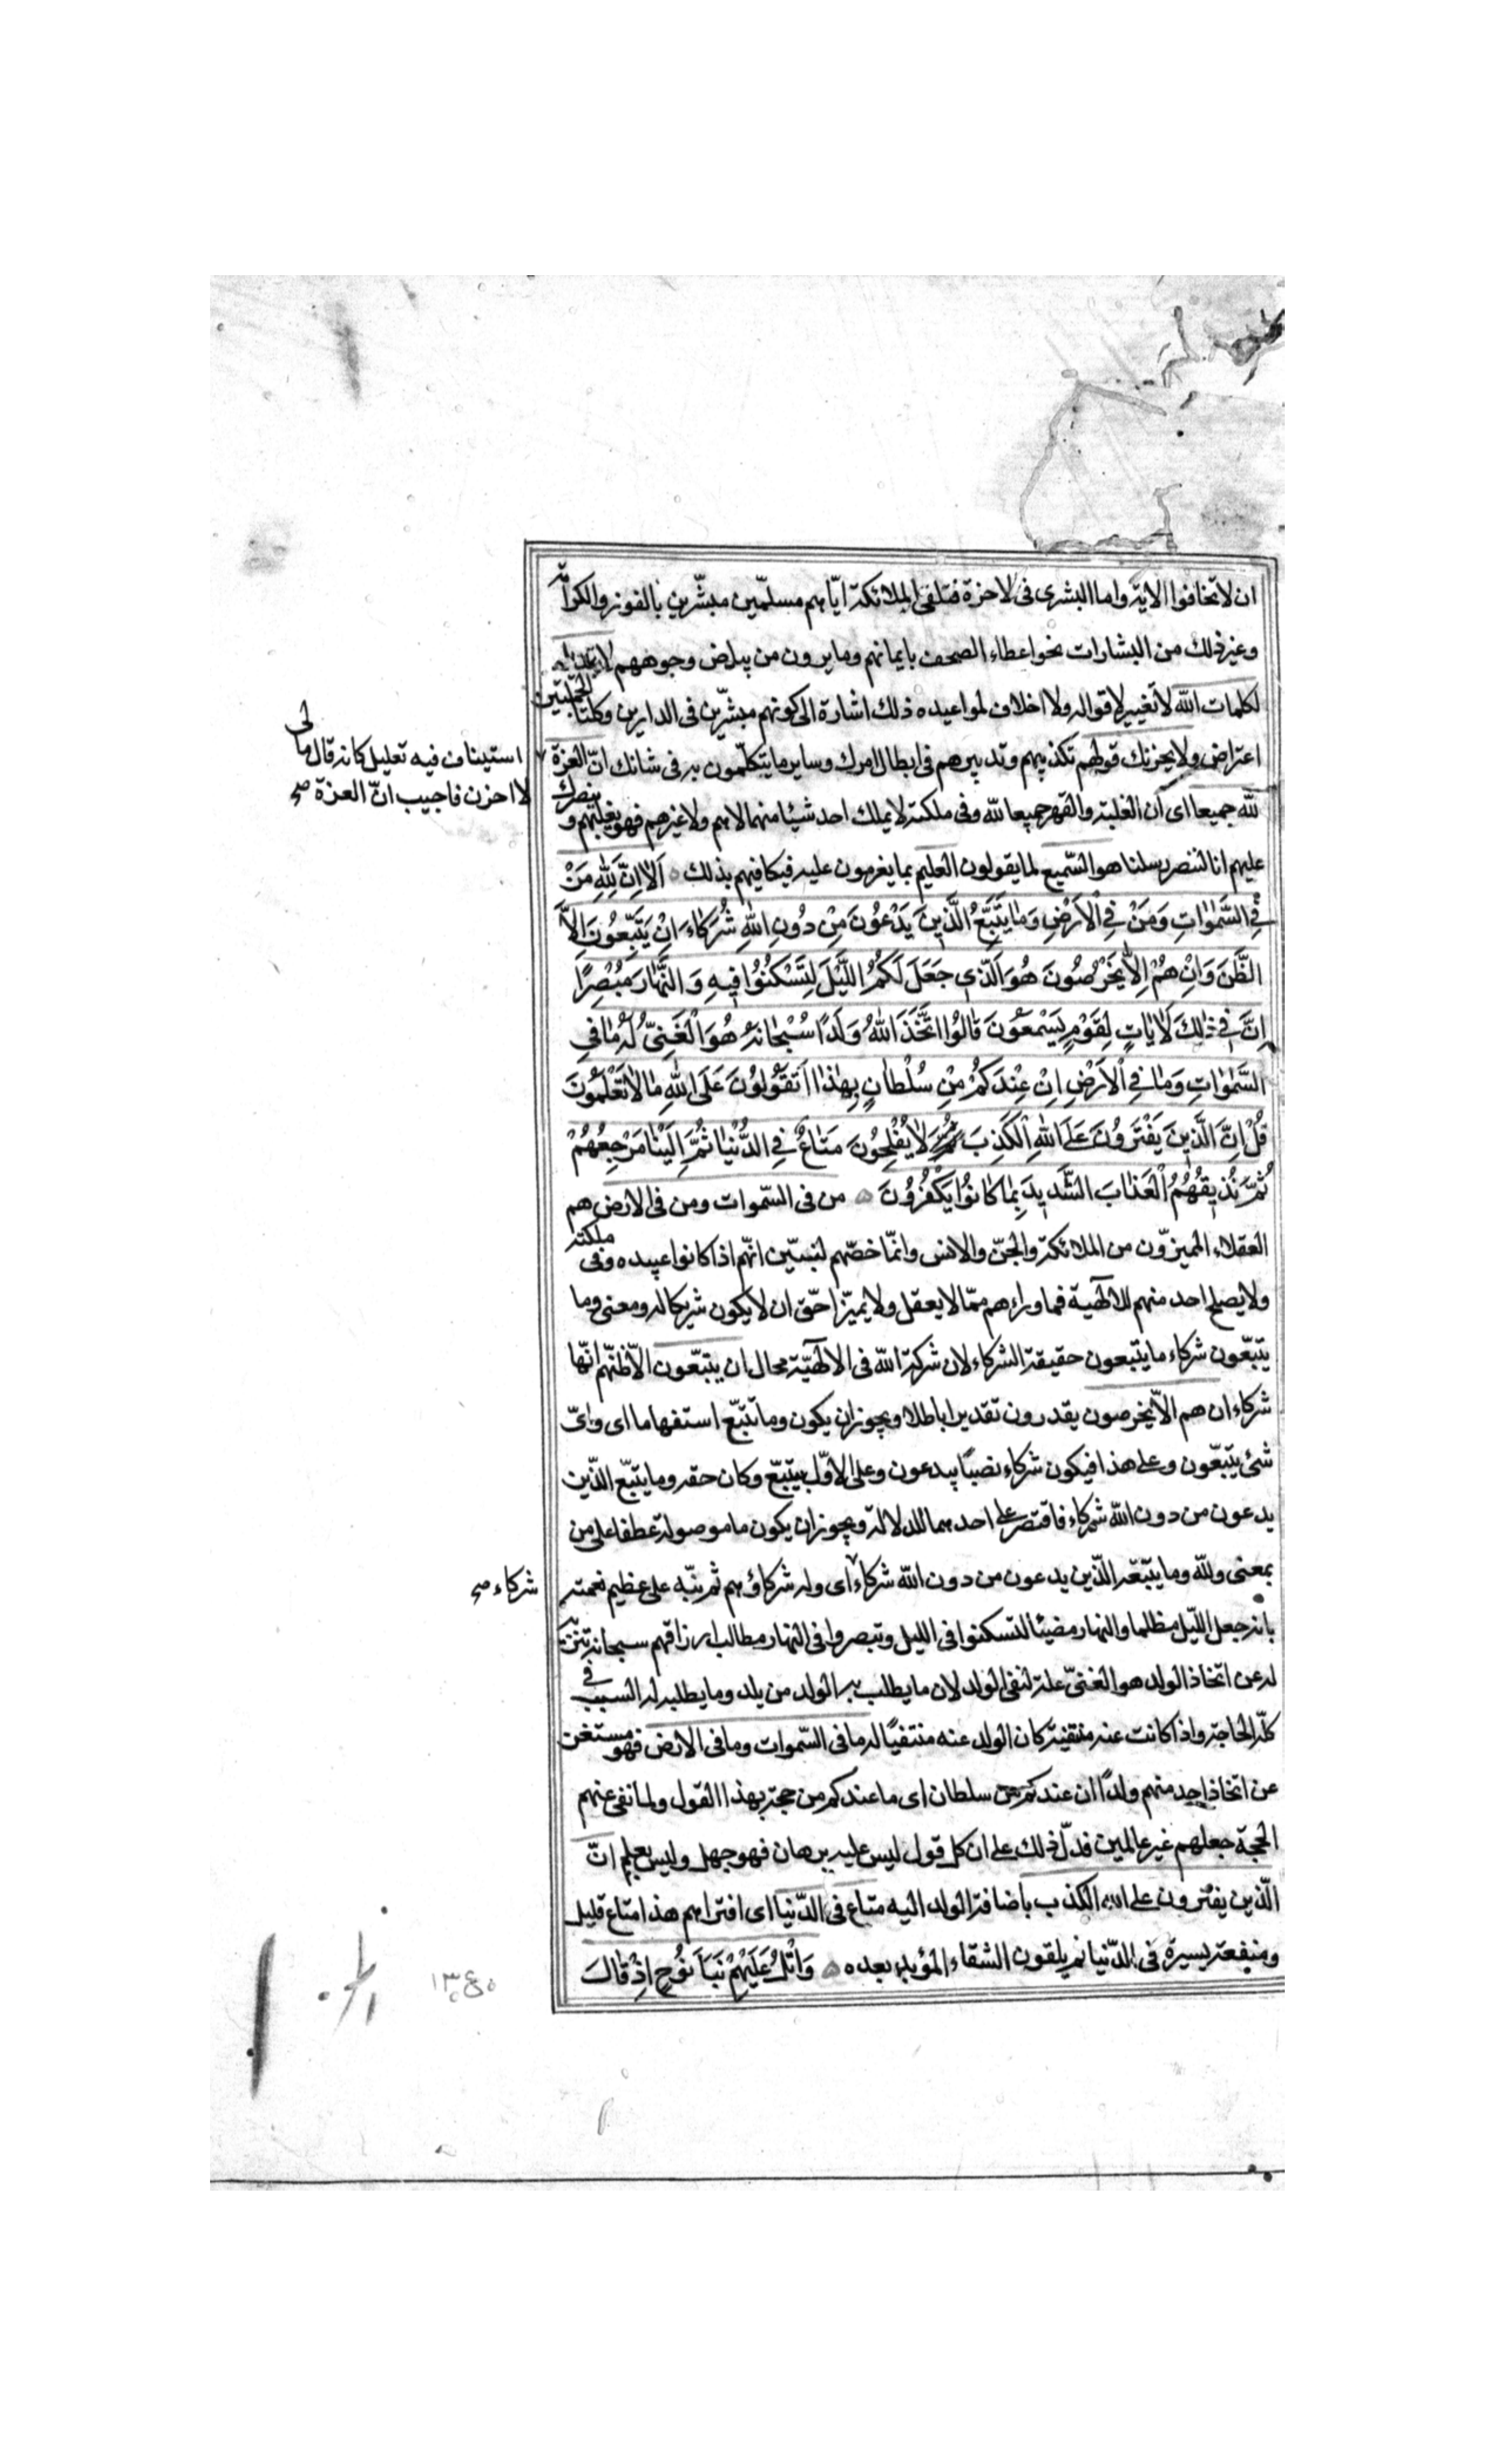 ان لا تخافوا الاية واما البشرى فى لاخرة فتلقى الملائكة ايّاهم مسلّمين مبشّرين بالفوز والكرامة
وغير ذلك من البشارات نحو اعطاء الصحف بايمانهم وما يرون من بياض وجوههم لا تبديل
لكلمات الله لا تغيير لاقواله ولا اخلاف لمواعيده ذلك اشارة الى كونهم مبشّرين فى الدارين وكلتا الجملتين
اعتراض ولا يحزنك قولهم تكذيبهم وتدبيرهم فى ابطال امرك وساير ما يتكلّمون به فى شانك انّ العزة
استيناف فيه تعليل كانه قال مالى
لا احزن فاجيب انّ العزة صح
لله جميعا اى ان الغلبة والقهر جميعا لله وفى ملكته لا يملك احد شيئا منهما لا هم ولا غيرهم فهو يغلبهم وينصرك
عليهم انا لننصر رسلنا هو السّميع لما يقولون العليم بما يغرمون عليه فيكافيهم بذلك اَلاٰ اِنَّ لِلّٰهِ مَنْ
فِى السَّمٰوٰاتِ وَمَنْ فِى الْاَرْضِ وَمٰا يَتَّبِعُ الَّذينَ يَدْعُونَ مِنْ دُونِ اللّٰهِ شُرَكٰاءَ اِنْ يَتَّبِعُونَ اِلاَّ
الظَّنَّ وَاِنْ هُمْ اِلاّٰ يَخْرُصُونَ هُوَ الَّذى جَعَلَ لَكُمُ اللَّيْلَ لِتَسْكُنُوا فيهِ وَالنَّهٰارَ مُبْصِرًا
اِنَّ فى ذٰلِكَ لَاٰيٰاتٍ لِقَوْمٍ يَسْمَعُونَ قٰالُوا اتَّخَذَ اللّٰهُ وَلَدًا سُبْحٰانَهُ هُوَ الْغَنِىُّ لَهُ مٰا فِى
السَّمٰوٰاتِ وَمٰا فِى الْاَرْضِ اِنْ عِنْدَكُمْ مِنْ سُلْطٰانٍ بِهٰذٰا اَتَقُولُونَ عَلَى اللّٰهِ مٰا لاٰ تَعْلَمُونَ
قُلْ اِنَّ الَّذينَ يَفْتَرُونَ عَلَى اللّٰهِ الْكَذِبَ لاٰ يُفْلِحُونَ مَتٰاعٌ فِى الدُّنْيٰا ثُمَّ اِلَيْنٰا مَرْجِعُهُمْ
ثُمَّ نُذيقُهُمُ الْعَذٰابَ الشَّديدَ بِمٰا كٰانُوا يَكْفُرُونَ من فى السّموات ومن فى الارض هم
العقلاء المميزّون من الملائكة والجنّ والانس وانّما خصّهم لنبيّن انّهم اذا كانوا عبيده وفى ملكته
ولا يصلح احد منهم للالٰهية فما وراءهم ممّا لا يعقل ولا يميّز احّق ان لا يكون شريكا له ومعنى وما
يتبّعون شركاء ما يتبعون حقيقة الشركاء لان شركة الله فى الالٰهيّة محال ان يتبّعون الاّ ظنّهم انّها
شركاء ان هم الاّ يخرصون يقدرون تقديرا باطلا ويجوز ان يكون وما تتبّع استفهاما اى واىّ
شئ يتبّعون وعلى هذا فيكون شركاء نصبًا بيدعون وعلى الاوّل بيتبّع وكان حقه وما يتبّع الذّين
يدعون من دون الله شركاء فاقتصر على احدهما للدلالة ويجوز ان يكون ما موصولة عطفا على من
بمعنى ولله وما يتبّعه الذّين يدعون من دون الله شركاء اى وله شركاؤهم ثم نبّه على عظيم نعمته
شركاء صح
بانه جعل اللّيل مظلما والنهار مضيئا لتسكنوا فى الليل وتبصروا فى النهار مطالب ارزاقهم سبحانه تنزيه
له عن اتخاذ الولد هو الغنىّ علة لنفى الولد لان ما يطلب به الولد من يلد وما يطلبه له السبب فى
كلّه الحاجة واذا كانت عنه منتفية كان الولد عنه منتفيًا له ما فى السّموات وما فى الارض فهو مستغن
عن اتخاذ احد منهم ولدًا ان عندكم من سلطان اى ما عندكم من حجة بهذا القول ولما نفى عنهم
الحجة جعلهم غير عالمين فدلّ ذلك على ان كل قول ليس عليه برهان فهو جهل وليس بعلم انّ
الّذين يفترون على الله الكذب باضافة الولد اليه متاع فى الدّنيا اى افتراهم هذا متاع قليل
ومنفعة يسيرة فى الدّنيا ثم يلقون الشقاء المؤبد بعده وَاتْلُ عَلَيْهِمْ نَبَأَ نُوحٍ اِذْ قٰالَ